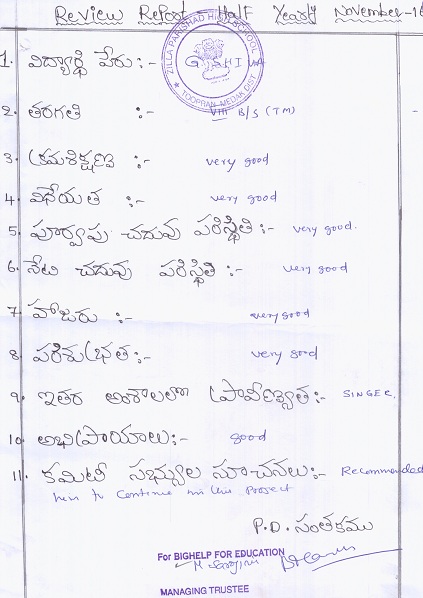 Review Report Half Yearly November-16
ZILLA PARISHAD HIGH SCHOOL
TOOPRAN, MEDAK DIST
1. విద్యార్థి పేరు:- G. SHIVA
2. తరగతి :- VIII B/S (TM)
3. క్రమశిక్షణ :- very good
4. వినేయత :- very good
5. పూర్వపు చదువు పరిస్థితి:- very good.
6. నేటి చదువు పరిస్థితి:- very good
7. హాజరు :- very good
8. పరిశుభ్రత:- very good
9. ఇతర అంశాలలో ప్రావీణ్యత:- SINGER.
10. అభిప్రాయాలు:- good
11. కమిటీ సభ్యుల సూచనలు:- Recommended
to continue in the Project
P.D. సంతకము
For BIGHELP FOR EDUCATION
MANAGING TRUSTEE